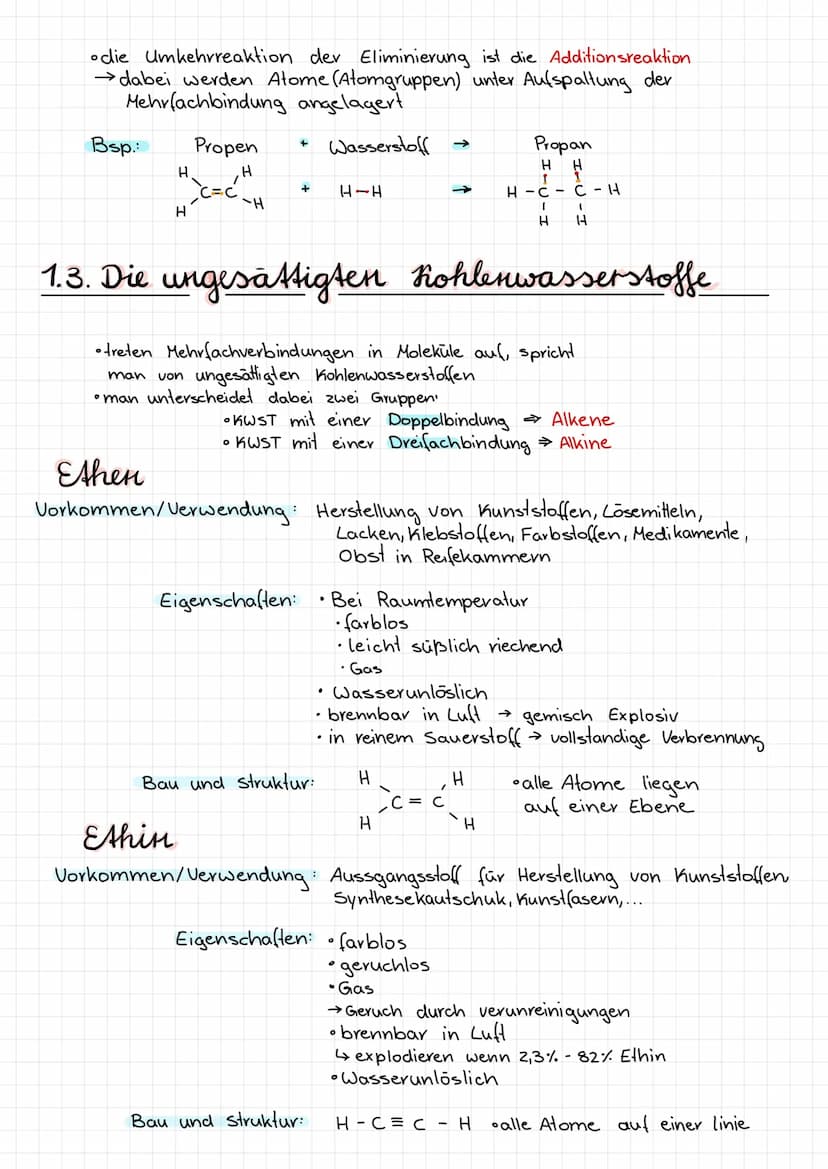 •die Umkehrreaktion der Eliminierung ist die Additionsreaktion
→dabei werden Atome (Atomgruppen) unter Aufspaltung der
Mehrfachbindung angelagert
Bsp.: Propen + Wasserstoff → Propan
H H H H
C=C + H-H → H-C-C-H
H H H H
1.3. Die ungesättigten Kohlenwasserstoffe
•treten Mehrfachverbindungen in Moleküle auf, spricht
man von ungesättigten Kohlenwasserstoffen
•man unterscheidet dabei zwei Gruppen:
•KWST mit einer Doppelbindung ⇒ Alkene
•KWST mit einer Dreifachbindung ⇒ Alkine
Ethen
Vorkommen/Verwendung: Herstellung von Kunststoffen, Lösemitteln,
Lacken, Klebstoffen, Farbstoffen, Medikamente,
Obst in Reifekammern
Eigenschaften: • Bei Raumtemperatur
·farblos
·leicht süßlich riechend
·Gas
• Wasserunlöslich
·brennbar in Luft → gemisch Explosiv
·in reinem Sauerstoff → vollständige Verbrennung
Bau und Struktur: H H •alle Atome liegen
C=C auf einer Ebene
H H
Ethin
Vorkommen/Verwendung: Aussgangsstoff für Herstellung von Kunststoffen
Synthesekautschuk, Kunstfasern,...
Eigenschaften: •farblos
•geruchlos
•Gas
→Geruch durch verunreinigungen
•brennbar in Luft
↳ explodieren wenn 2,3% - 82% Ethin
•Wasserunlöslich
Bau und Struktur: H-C≡C-H •alle Atome auf einer linie